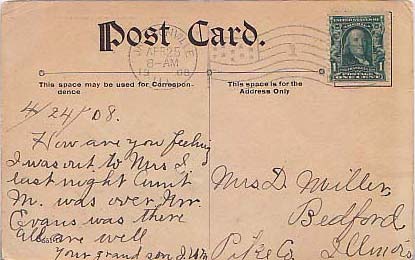 Post Card.
APR 25
8-AM
1908
ILL.
This space may be used for Correspon-
dence
This space is for the
Address Only
POSTAGE
ONE CENT
1 1
4/24/08.
How are you feeling
I was out to Mrs S
last night Aunt
M. was over Mr
Evans was there
All are well
Your grand son
Mrs D. Miller,
Bedford
Pike Co. Illinois